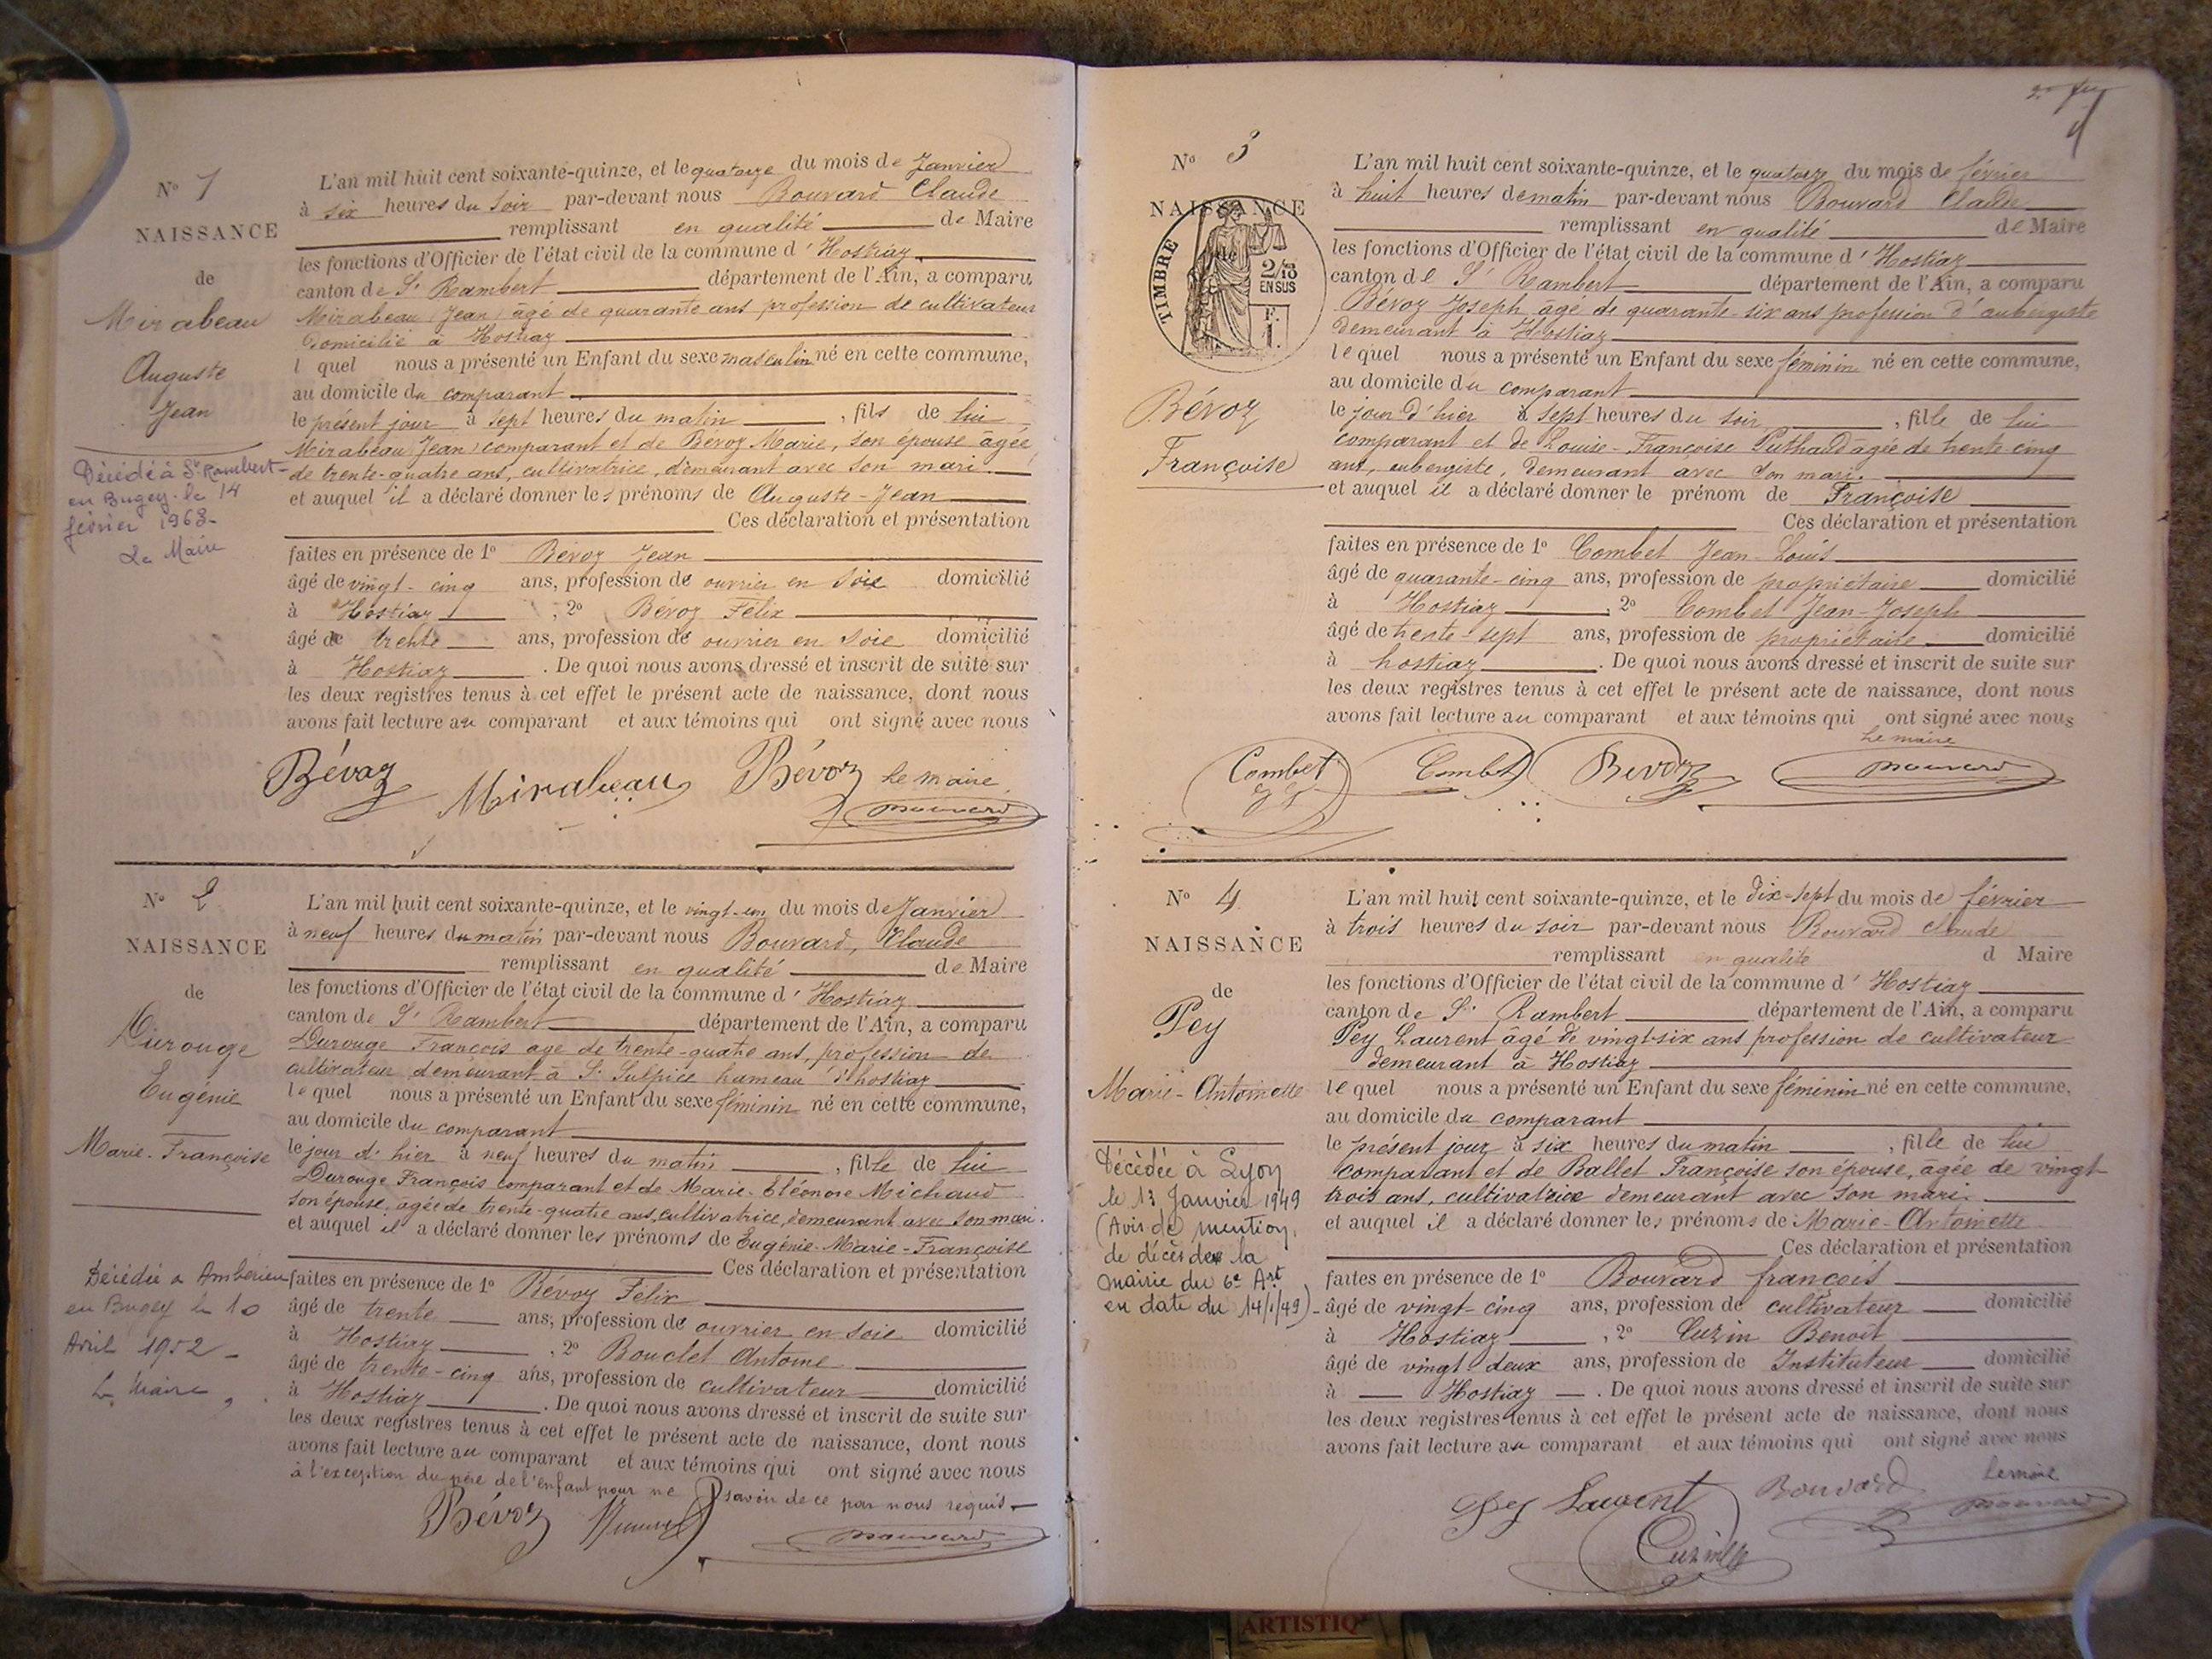 N° 1
NAISSANCE
de
Mirabeau
Auguste
Jean
Décédé à St Rambert-
en Bugey le 14
février 1963-
Le Maire
L'an mil huit cent soixante-quinze, et le quatorze du mois de Janvier
à six heures du soir par-devant nous Bouvard Claude
remplissant en qualité de Maire
les fonctions d'Officier de l'état civil de la commune d'Hostiaz
canton de St Rambert département de l'Ain, a comparu
Mirabeau (Jean) âgé de quarante ans profession de cultivateur
domicilié à Hostiaz
lquel nous a présenté un Enfant du sexe masculin né en cette commune,
au domicile du comparant
le présent jour à sept heures du matin, fils de lui
Mirabeau (Jean) comparant et de Bévoz Marie, son épouse âgée
de trente-quatre ans, cultivatrice, demeurant avec son mari
et auquel il a déclaré donner les prénoms de Auguste-Jean
Ces déclaration et présentation
faites en présence de 1° Bévoz Jean
âgé de vingt-cinq ans, profession de ouvrier en soie domicilié
à Hostiaz, 2° Bévoz Félix
âgé de trente ans, profession de ouvrier en soie domicilié
à Hostiaz. De quoi nous avons dressé et inscrit de suite sur
les deux registres tenus à cet effet le présent acte de naissance, dont nous
avons fait lecture au comparant et aux témoins qui ont signé avec nous
Bévoz Mirabeau Bévoz le maire
Bouvard
N° 2
NAISSANCE
de
Durouge
Eugénie
Marie-Françoise
Décédée à Ambérieu
en Bugey le 10
Avril 1952-
Le Maire,
L'an mil huit cent soixante-quinze, et le vingt-un du mois de Janvier
à neuf heures du matin par-devant nous Bouvard, Claude
remplissant en qualité de Maire
les fonctions d'Officier de l'état civil de la commune d'Hostiaz
canton de St Rambert département de l'Ain, a comparu
Durouge François age de trente-quatre ans, profession de
cultivateur demeurant à St Sulpice hameau d'hostiaz
lequel nous a présenté un Enfant du sexe féminin né en cette commune,
au domicile du comparant
le jour d'hier à neuf heures du matin, fille de lui
Durouge François comparant et de Marie-Eléonore Michaud
son épouse, agée de trente-quatre ans, cultivatrice, demeurant avec son mari.
et auquel il a déclaré donner les prénoms de Eugénie-Marie-Françoise
Ces déclaration et présentation
faites en présence de 1° Bévoz Félix
âgé de trente ans, profession de ouvrier en soie domicilié
à Hostiaz, 2° Bouclet Antoine
âgé de trente-cinq ans, profession de cultivateur domicilié
à Hostiaz. De quoi nous avons dressé et inscrit de suite sur
les deux registres tenus à cet effet le présent acte de naissance, dont nous
avons fait lecture au comparant et aux témoins qui ont signé avec nous
à l'exception du père de l'enfant pour ne savoir de ce par nous requis.
Bévoz Bouvard
N° 3
NAISSANCE
de
TIMBRE
2/10
EN SUS
F.
1.
Bévoz
Françoise
L'an mil huit cent soixante-quinze, et le quatorze du mois de février
à huit heures de matin par-devant nous Bouvard Claude
remplissant en qualité de Maire
les fonctions d'Officier de l'état civil de la commune d'Hostiaz
canton de St Rambert département de l'Ain, a comparu
Bévoz Joseph âgé de quarante-six ans profession d'aubergiste
demeurant à Hostiaz
lequel nous a présenté un Enfant du sexe féminin né en cette commune,
au domicile du comparant
le jour d'hier à sept heures du soir, fille de lui
comparant et de Louise-Françoise Puthaud agée de trente-cinq
ans, aubergiste, demeurant avec son mari.
et auquel il a déclaré donner le prénom de Françoise
Ces déclaration et présentation
faites en présence de 1° Combet Jean-Louis
âgé de quarante-cinq ans, profession de propriétaire domicilié
à Hostiaz, 2° Combet Jean-Joseph
âgé de trente-sept ans, profession de propriétaire domicilié
à hostiaz. De quoi nous avons dressé et inscrit de suite sur
les deux registres tenus à cet effet le présent acte de naissance, dont nous
avons fait lecture au comparant et aux témoins qui ont signé avec nous
le maire
Combet Combet Bevoz Bouvard
N° 4
NAISSANCE
de
Pey
Marie-Antoinette
Décédée à Lyon
le 13 Janvier 1949
(Avis de mention
de décès de la
mairie du 6e Art
en date du 14/1/49)
L'an mil huit cent soixante-quinze, et le dix-sept du mois de février
à trois heures du soir par-devant nous Bouvard claude
remplissant en qualité d Maire
les fonctions d'Officier de l'état civil de la commune d'Hostiaz
canton de St Rambert département de l'Ain, a comparu
Pey Laurent âgé de vingt-six ans profession de cultivateur
demeurant à Hostiaz
lequel nous a présenté un Enfant du sexe féminin né en cette commune,
au domicile du comparant
le présent jour à six heures du matin, fille de lui
comparant et de Ballet Françoise son épouse, agée de vingt-
trois ans, cultivatrice demeurant avec son mari.
et auquel il a déclaré donner les prénoms de Marie-Antoinette
Ces déclaration et présentation
faites en présence de 1° Bouvard françois
âgé de vingt-cinq ans, profession de cultivateur domicilié
à Hostiaz, 2° Cuzin Benoît
âgé de vingt-deux ans, profession de Instituteur domicilié
à Hostiaz. De quoi nous avons dressé et inscrit de suite sur
les deux registres tenus à cet effet le présent acte de naissance, dont nous
avons fait lecture au comparant et aux témoins qui ont signé avec nous
Pey Laurent Bouvard le maire
Cuzin Bouvard
ARTISTIQ